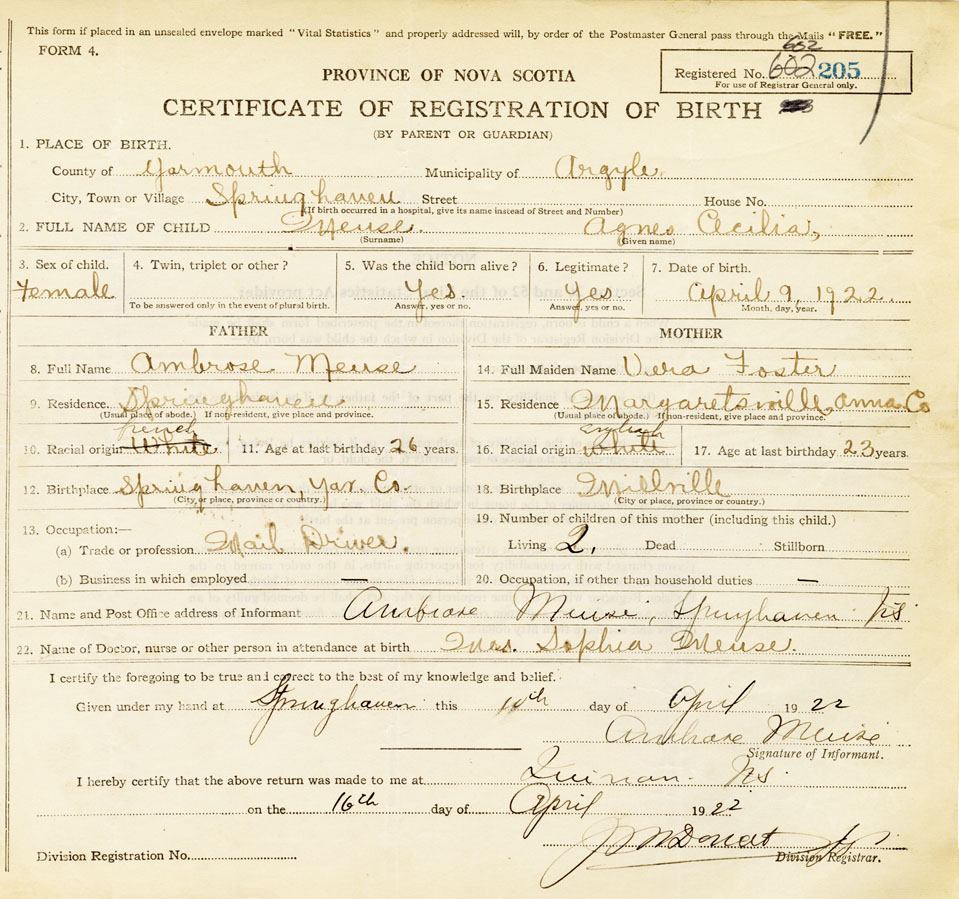 This form if placed in an unsealed envelope marked "Vital Statistics" and properly addressed will, by order of the Postmaster General pass through the Mails "FREE."
FORM 4.
602
Registered No. 602 205
For use of Registrar General only.
PROVINCE OF NOVA SCOTIA
CERTIFICATE OF REGISTRATION OF BIRTH
(BY PARENT OR GUARDIAN)
1. PLACE OF BIRTH.
County of Yarmouth Municipality of Argyle
City, Town or Village Springhaven Street House No.
(If birth occurred in a hospital, give its name instead of Street and Number)
2. FULL NAME OF CHILD Meuse. Agnes Cecilia,
(Surname) (Given name)
3. Sex of child. 4. Twin, triplet or other? 5. Was the child born alive? 6. Legitimate? 7. Date of birth.
Female Yes. Yes. April 9, 1922.
To be answered only in the event of plural birth. Answer, yes or no. Answer, yes or no. Month, day, year.
FATHER MOTHER
8. Full Name Ambrose Meuse 14. Full Maiden Name Vera Foster
9. Residence. Springhaven 15. Residence Margaretsville, Anna. Co
(Usual place of abode.) If non-resident, give place and province. (Usual place of abode.) If non-resident, give place and province.
french english
10. Racial origin White 11. Age at last birthday 26 years. 16. Racial origin White 17. Age at last birthday 23 years.
12. Birthplace Springhaven, Yar. Co. 18. Birthplace Millville
(City, or place, province or country.) (City or place, province or country.)
13. Occupation:— 19. Number of children of this mother (including this child.)
(a) Trade or profession Mail Driver. Living 2. Dead Stillborn
(b) Business in which employed — 20. Occupation, if other than household duties —
21. Name and Post Office address of Informant Ambrose Meuse, Springhaven NS
22. Name of Doctor, nurse or other person in attendance at birth Mrs. Sophia Meuse.
I certify the foregoing to be true and correct to the best of my knowledge and belief.
Given under my hand at Springhaven this 10th day of April 1922
Ambrose Meuse
Signature of Informant.
I hereby certify that the above return was made to me at Quinan. NS
on the 16th day of April 1922
Division Registration No. Division Registrar.